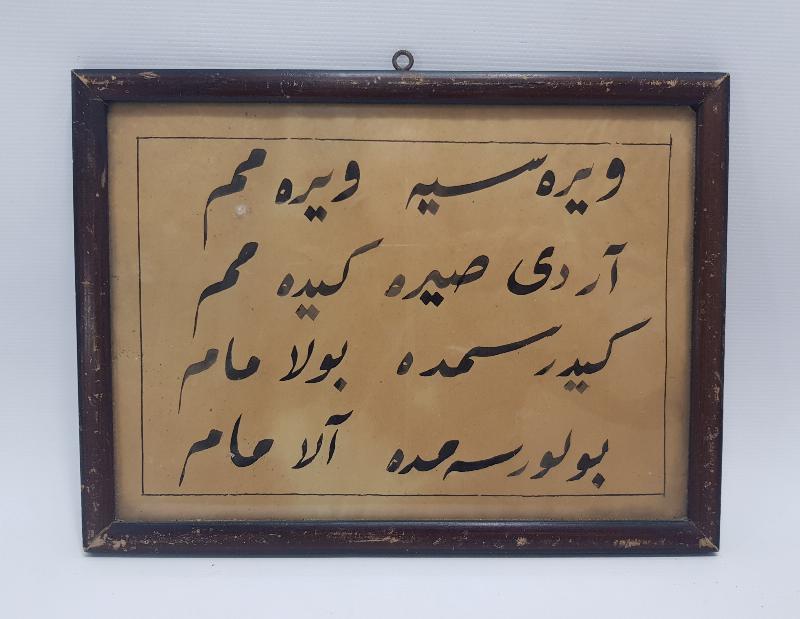 ويره سيه ويره مم
آردى صيره كيده مم
كيدرسمده بولا مام
بولورسه مده آلا مام